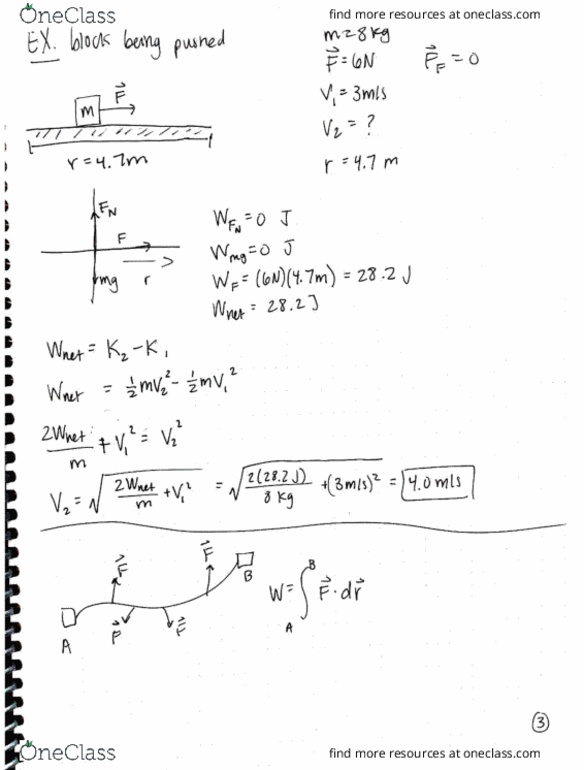 OneClass
find more resources at oneclass.com
EX. block being pushed
m = 8 kg
F⃗ = 6N
P⃗_F = 0
V₁ = 3m/s
V₂ = ?
r = 4.7 m
m
F⃗
r = 4.7m
F_N
F
mg
r
W_{F_N} = 0 J
W_{mg} = 0 J
W_F = (6N)(4.7m) = 28.2 J
W_{net} = 28.2 J
W_{net} = K₂ - K₁
W_{net} = ½mV₂² - ½mV₁²
2W_{net}/m + V₁² = V₂²
V₂ = √(2W_{net}/m + V₁²) = √(2(28.2 J)/8 kg + (3m/s)²) = 4.0 m/s
A
F⃗
F⃗
F⃗
F⃗
B
W = ∫_A^B F⃗ · dr⃗
3
OneClass
find more resources at oneclass.com